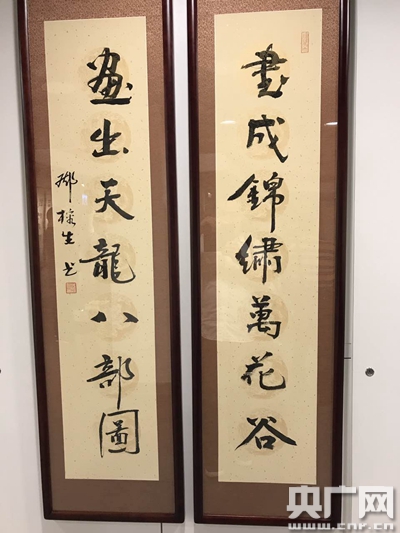 書成錦繡萬花谷
畫出天龍八部圖
生
央广网
www.cnr.cn